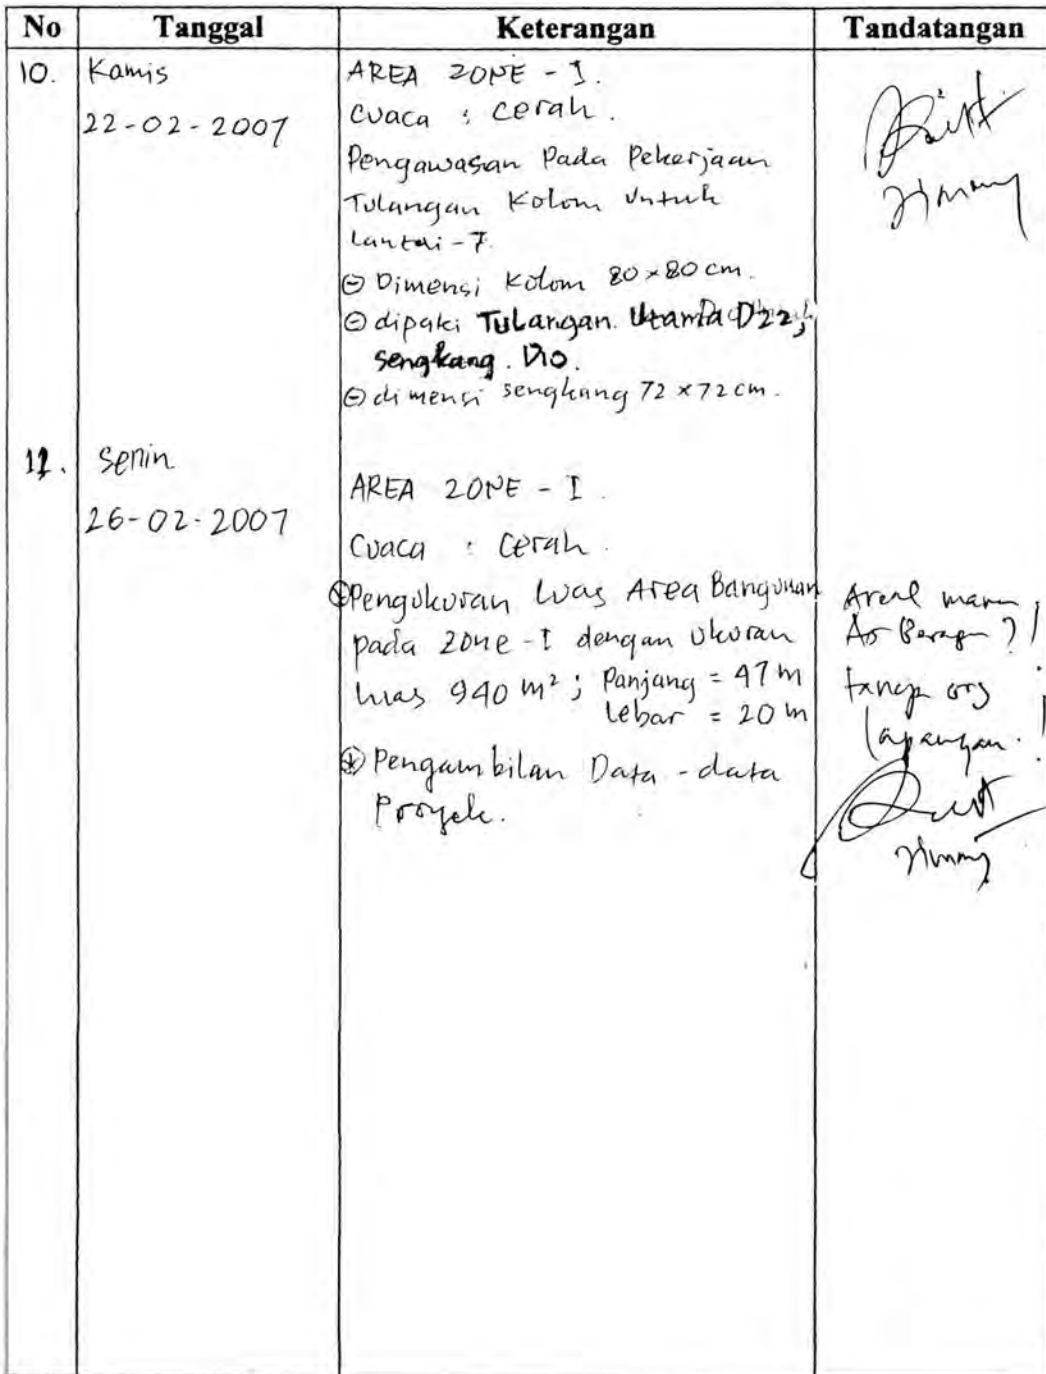 No Tanggal Keterangan Tandatangan
10. Kamis AREA ZONE - I.
22-02-2007 Cuaca : Cerah.
Pengawasan Pada Pekerjaan
Tulangan Kolom Untuk
Lantai-7.
⊖ Dimensi Kolom 80 x 80 cm.
⊖ dipaki Tulangan Utama D22,
sengkang. D10.
⊖ dimensi sengkang 72 x 72 cm.
11. Senin
AREA ZONE - I.
26-02-2007
Cuaca : Cerah.
⊕ Pengukuran Luas Area Bangunan
pada zone -I dengan ukuran
luas 940 m²; Panjang = 47 m
Lebar = 20 m
⊕ Pengambilan Data - data
Proyek.
Areal mana
As Berapa ?!
tanya org
lapangan. !